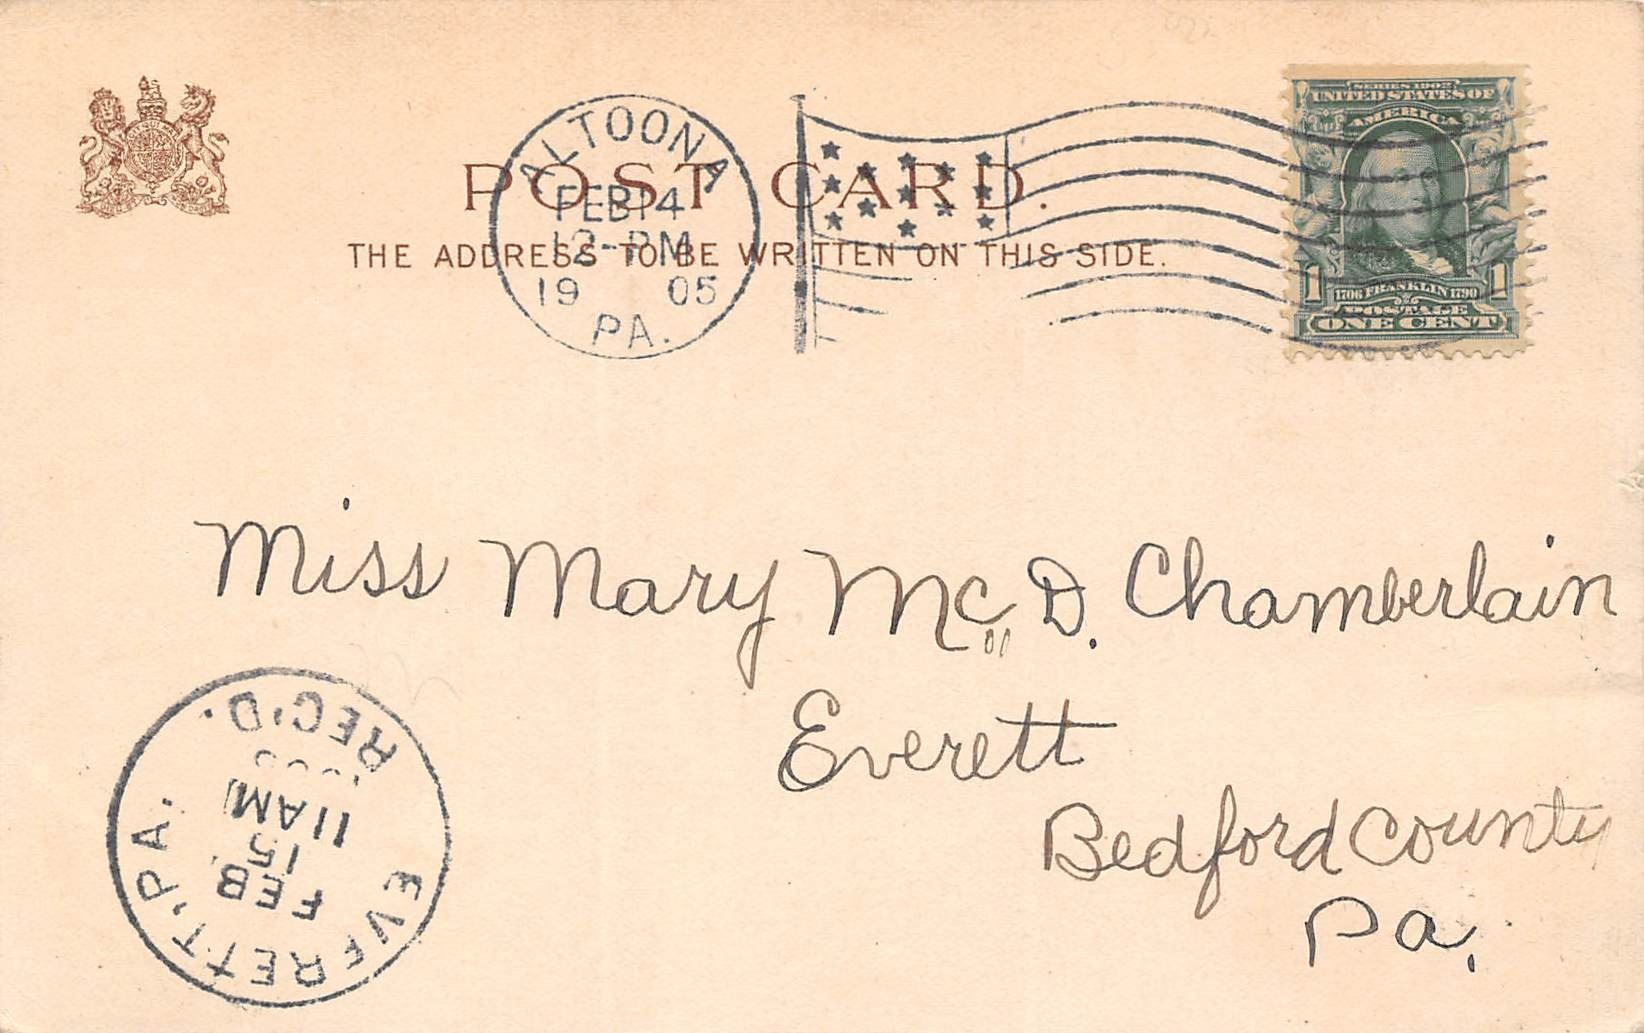 POST CARD.
THE ADDRESS TO BE WRITTEN ON THIS SIDE.
ALTOONA
FEB 14
12-PM
19 05
PA.
SERIES 1902
UNITED STATES OF
AMERICA
1 1706 FRANKLIN 1790 1
POSTAGE
ONE CENT
Miss Mary Mc D. Chamberlain
Everett
Bedford County
Pa.
EVERETT, PA.
FEB.
15
11 AM
REC'D.